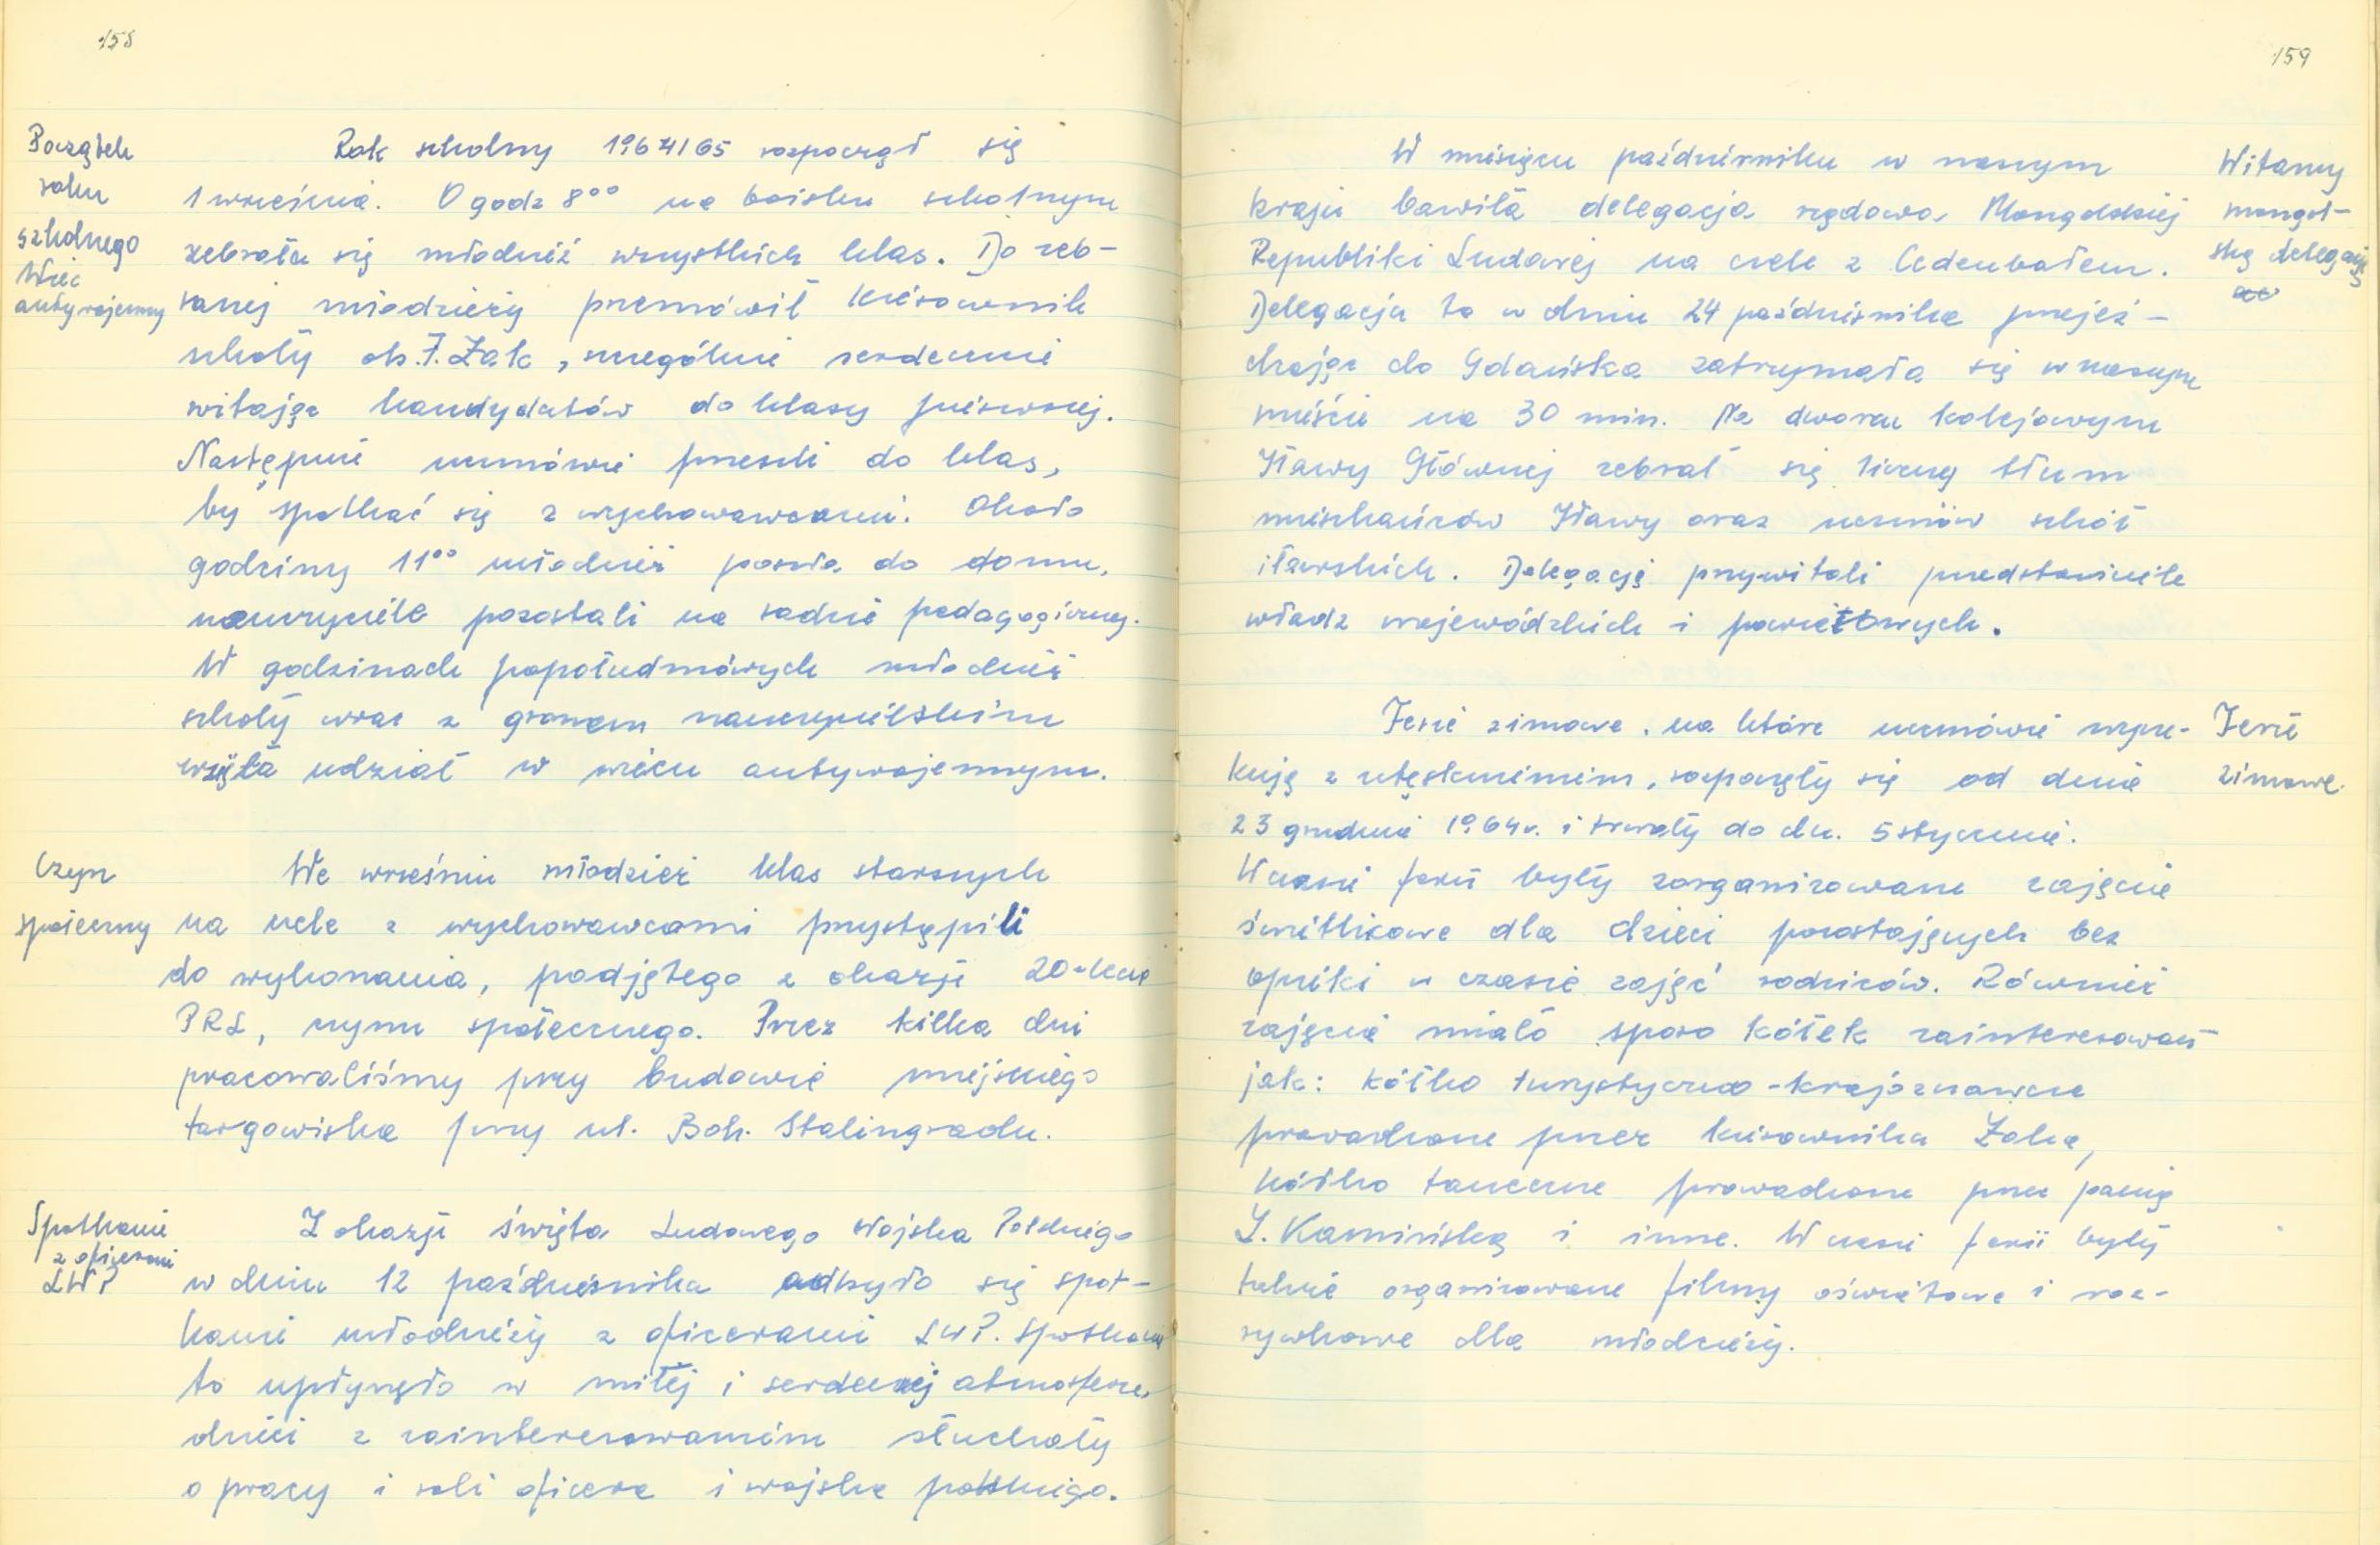 158
Początek
roku
szkolnego
Wiec
antywojenny
Rok szkolny 1964/65 rozpoczął się
1 września. O godz 8⁰⁰ na boisku szkolnym
zebrała się młodzież wszystkich klas. Do zeb-
ranej młodzieży przemówił kierownik
szkoły ob. F. Żak, szczególnie serdecznie
witając kandydatów do klasy pierwszej.
Następnie uczniowie przeszli do klas,
by spotkać się z wychowawcami. Około
godziny 11⁰⁰ młodzież poszła do domu,
nauczyciele pozostali na radzie pedagogicznej.
W godzinach popołudniowych młodzież
szkoły wraz z gronem nauczycielskim
wzięła udział w wiecu antywojennym.
Czyn
społeczny
We wrześniu młodzież klas starszych
na czele z wychowawcami przystąpili
do wykonania, podjętego z okazji 20-lecia
PRL, czynu społecznego. Przez kilka dni
pracowaliśmy przy budowie miejskiego
targowiska przy ul. Boh. Stalingradu.
Spotkanie
z oficerami
LWP
Z okazji święta Ludowego Wojska Polskiego
w dniu 12 października odbyło się spot-
kanie młodzieży z oficerami LWP. Spotkanie
to upłynęło w miłej i serdecznej atmosferze,
dzieci z zainteresowaniem słuchały
o pracy i roli oficera i wojska polskiego.
159
W miesiącu październiku w naszym
kraju bawiła delegacja rządowa Mongolskiej
Republiki Ludowej na czele z Cedenbałem.
Delegacja ta w dniu 24 października przejeż-
dżając do Gdańska zatrzymała się w naszym
mieście na 30 min. Na dworcu kolejowym
Iławy Głównej zebrał się liczny tłum
mieszkańców Iławy oraz uczniów szkół
iławskich. Delegację przywitali przedstawiciele
władz wojewódzkich i powiatowych.
Witamy
mongol-
ską delegację
Ferie zimowe, na które uczniowie ocze-
kują z utęsknieniem, rozpoczęły się od dnia
23 grudnia 1964 r. i trwały do dn. 5 stycznia.
W czasie ferii były zorganizowane zajęcia
świetlicowe dla dzieci pozostających bez
opieki w czasie zajęć rodziców. Również
zajęcia miało sporo kółek zainteresowań
jak: kółko turystyczno-krajoznawcze
prowadzone przez kierownika Żaka,
kółko taneczne prowadzone przez panią
I. Kamińską i inne. W czasie ferii były
także organizowane filmy oświatowe i roz-
rywkowe dla młodzieży.
Ferie
zimowe.